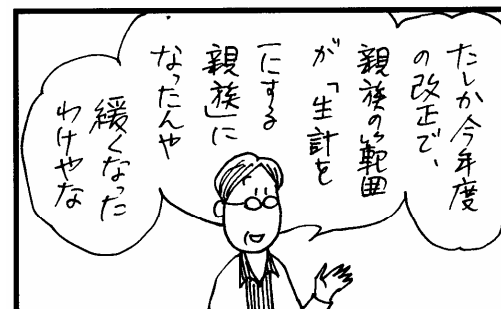 たしか今年度
の改正で、
親族の範囲
が「生計を
一にする
親族」に
なったんや
緩くなった
わけやな